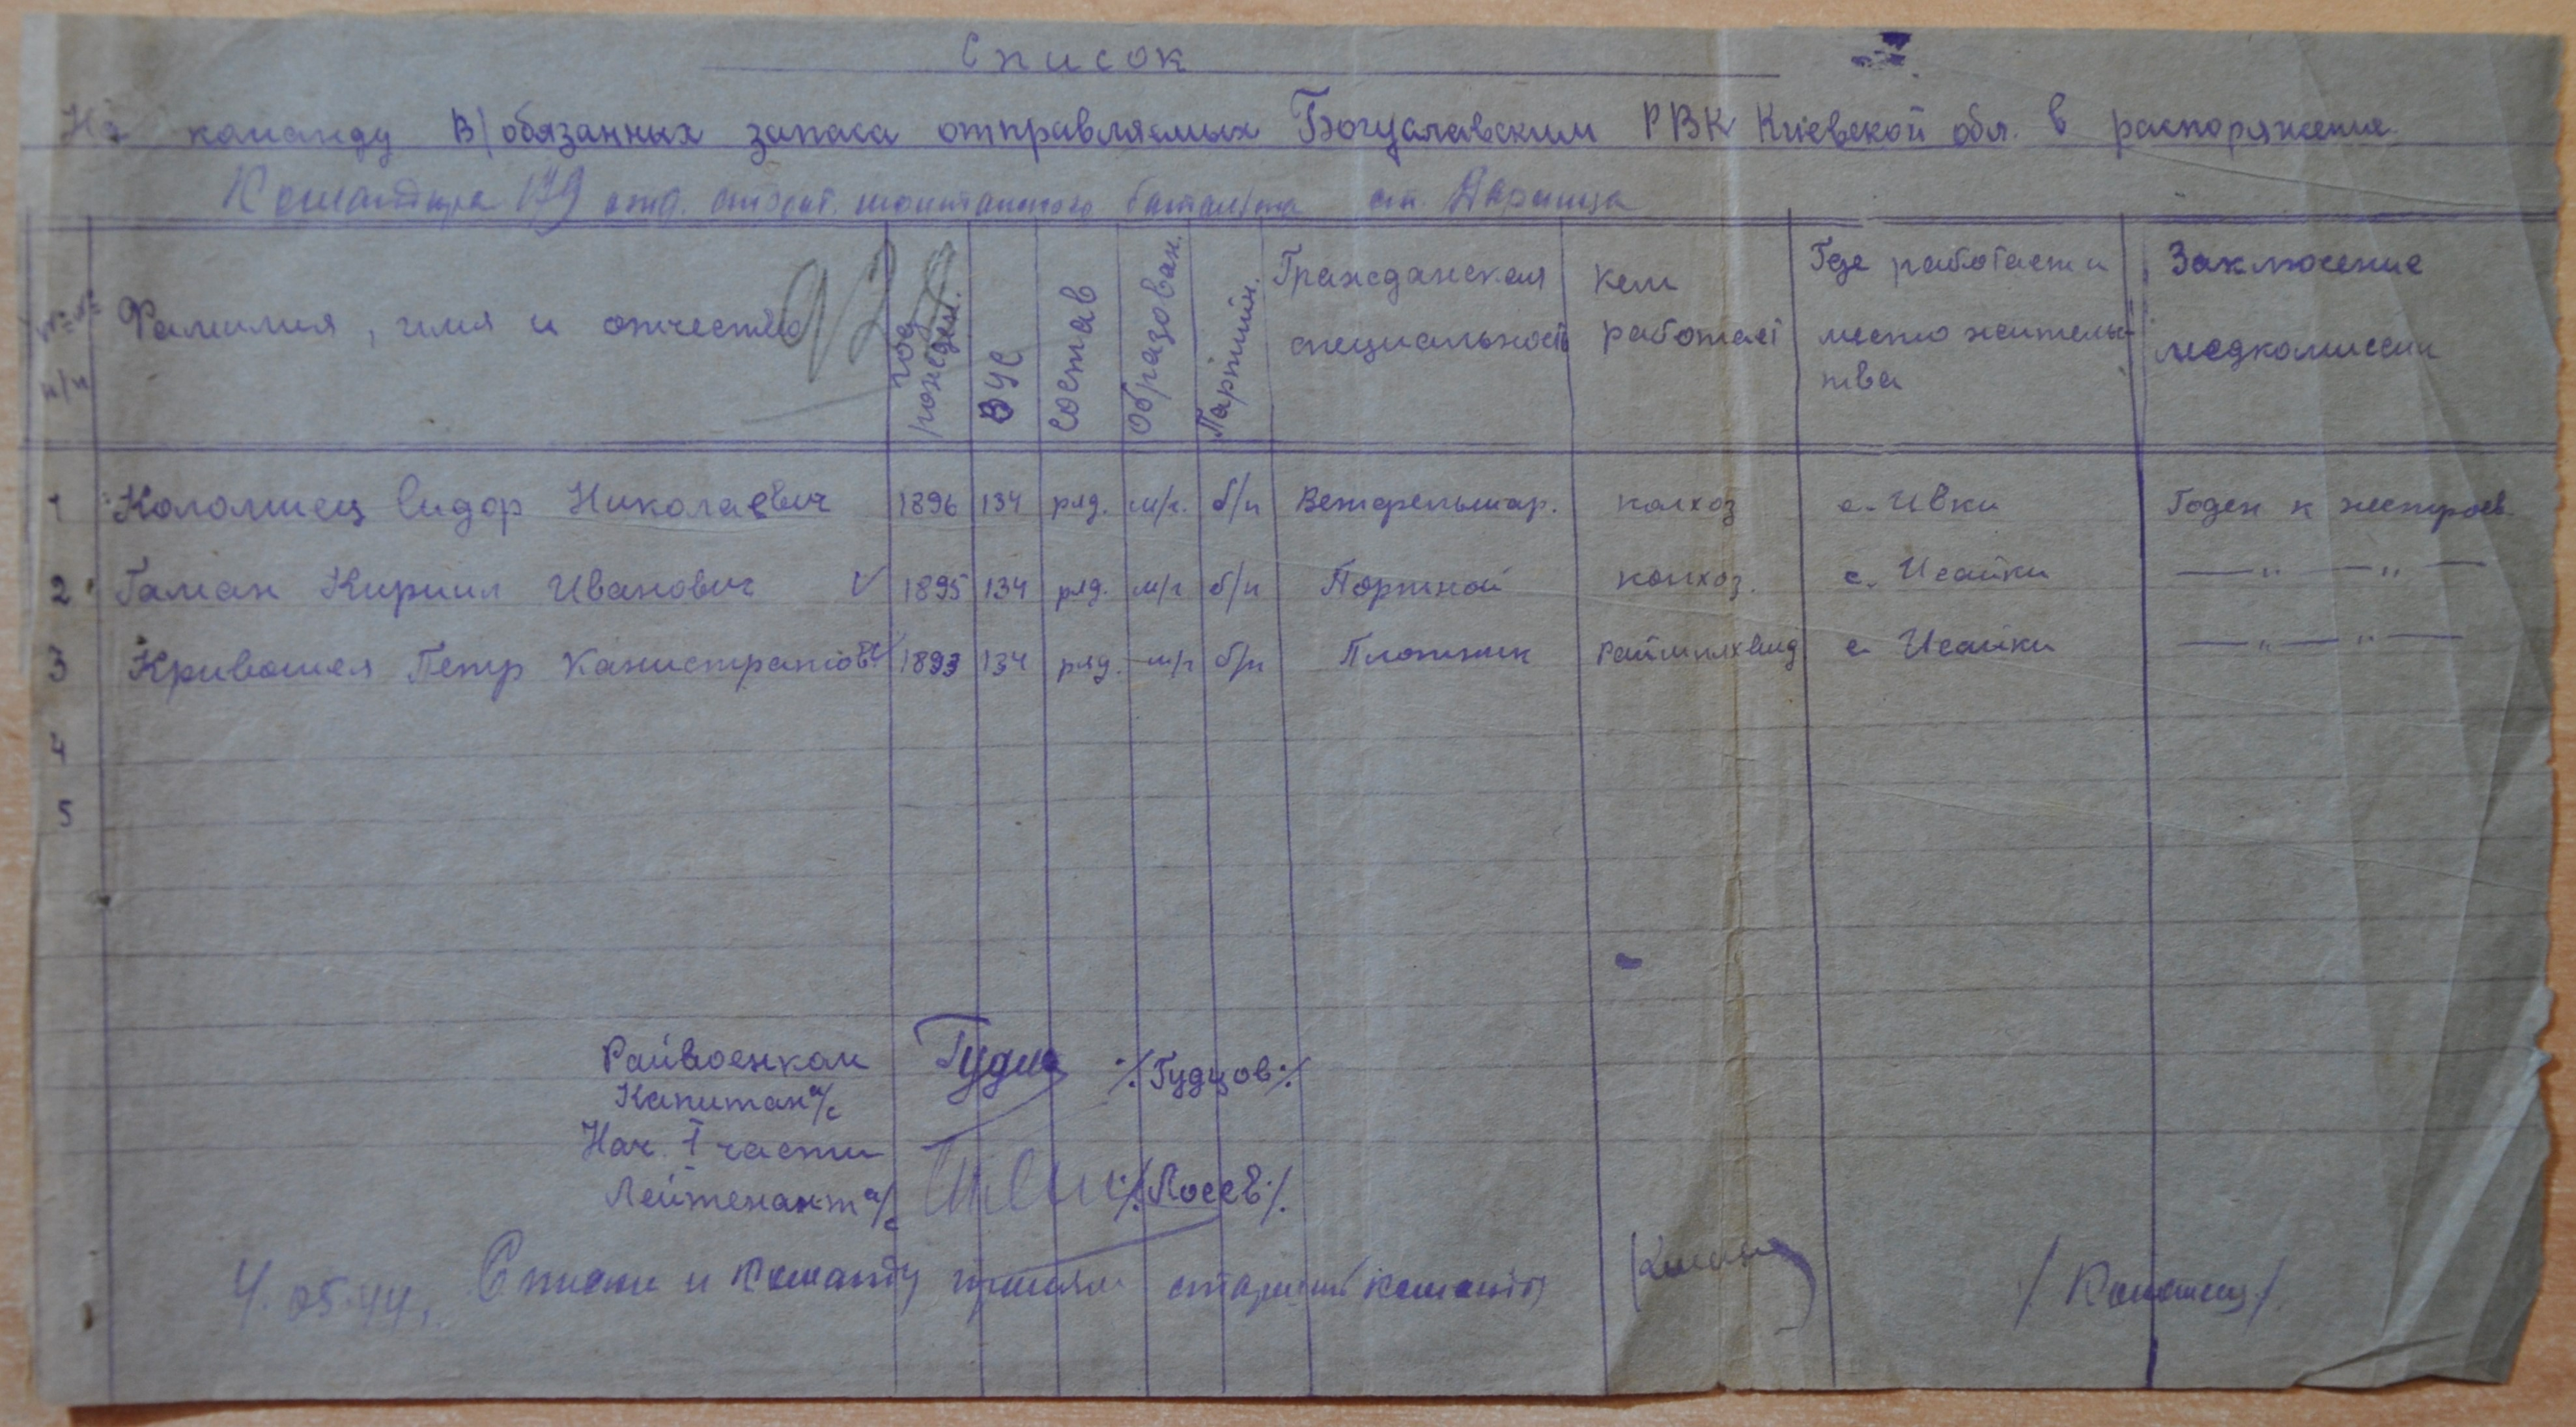 Список
На команду в/обязанных запаса отправляемых Богуславским РВК Киевской обл. в распоряжение
Командира 179 отд. строит. монтажного батальона ст. Дарница
№№ п/п Фамилия, имя и отчество год рожден. ВУС состав образован. Партийн. Гражданская специальность Кем работает Где работает и место жительства Заключение медкомиссии
1 Коломиец Сидор Николаевич 1896 134 ряд. м/г. б/п Ветфельшар. колхоз с. Ивки Годен к нестроев.
2 Гаман Кирилл Иванович V 1895 134 ряд. м/г б/п Портной колхоз. с. Исайки —"— —"—
3 Кривошея Петр Канистратов 1893 134 ряд. м/г б/п Плотник с. Исайки —"— —"—
4
5
Райвоенком ./.Гудцов./.
Капитан а/с
Нач. I части
Лейтенант а/с ./.Лосев./.
4.05.44. Списки и команду принял старший команды /Коломиец/